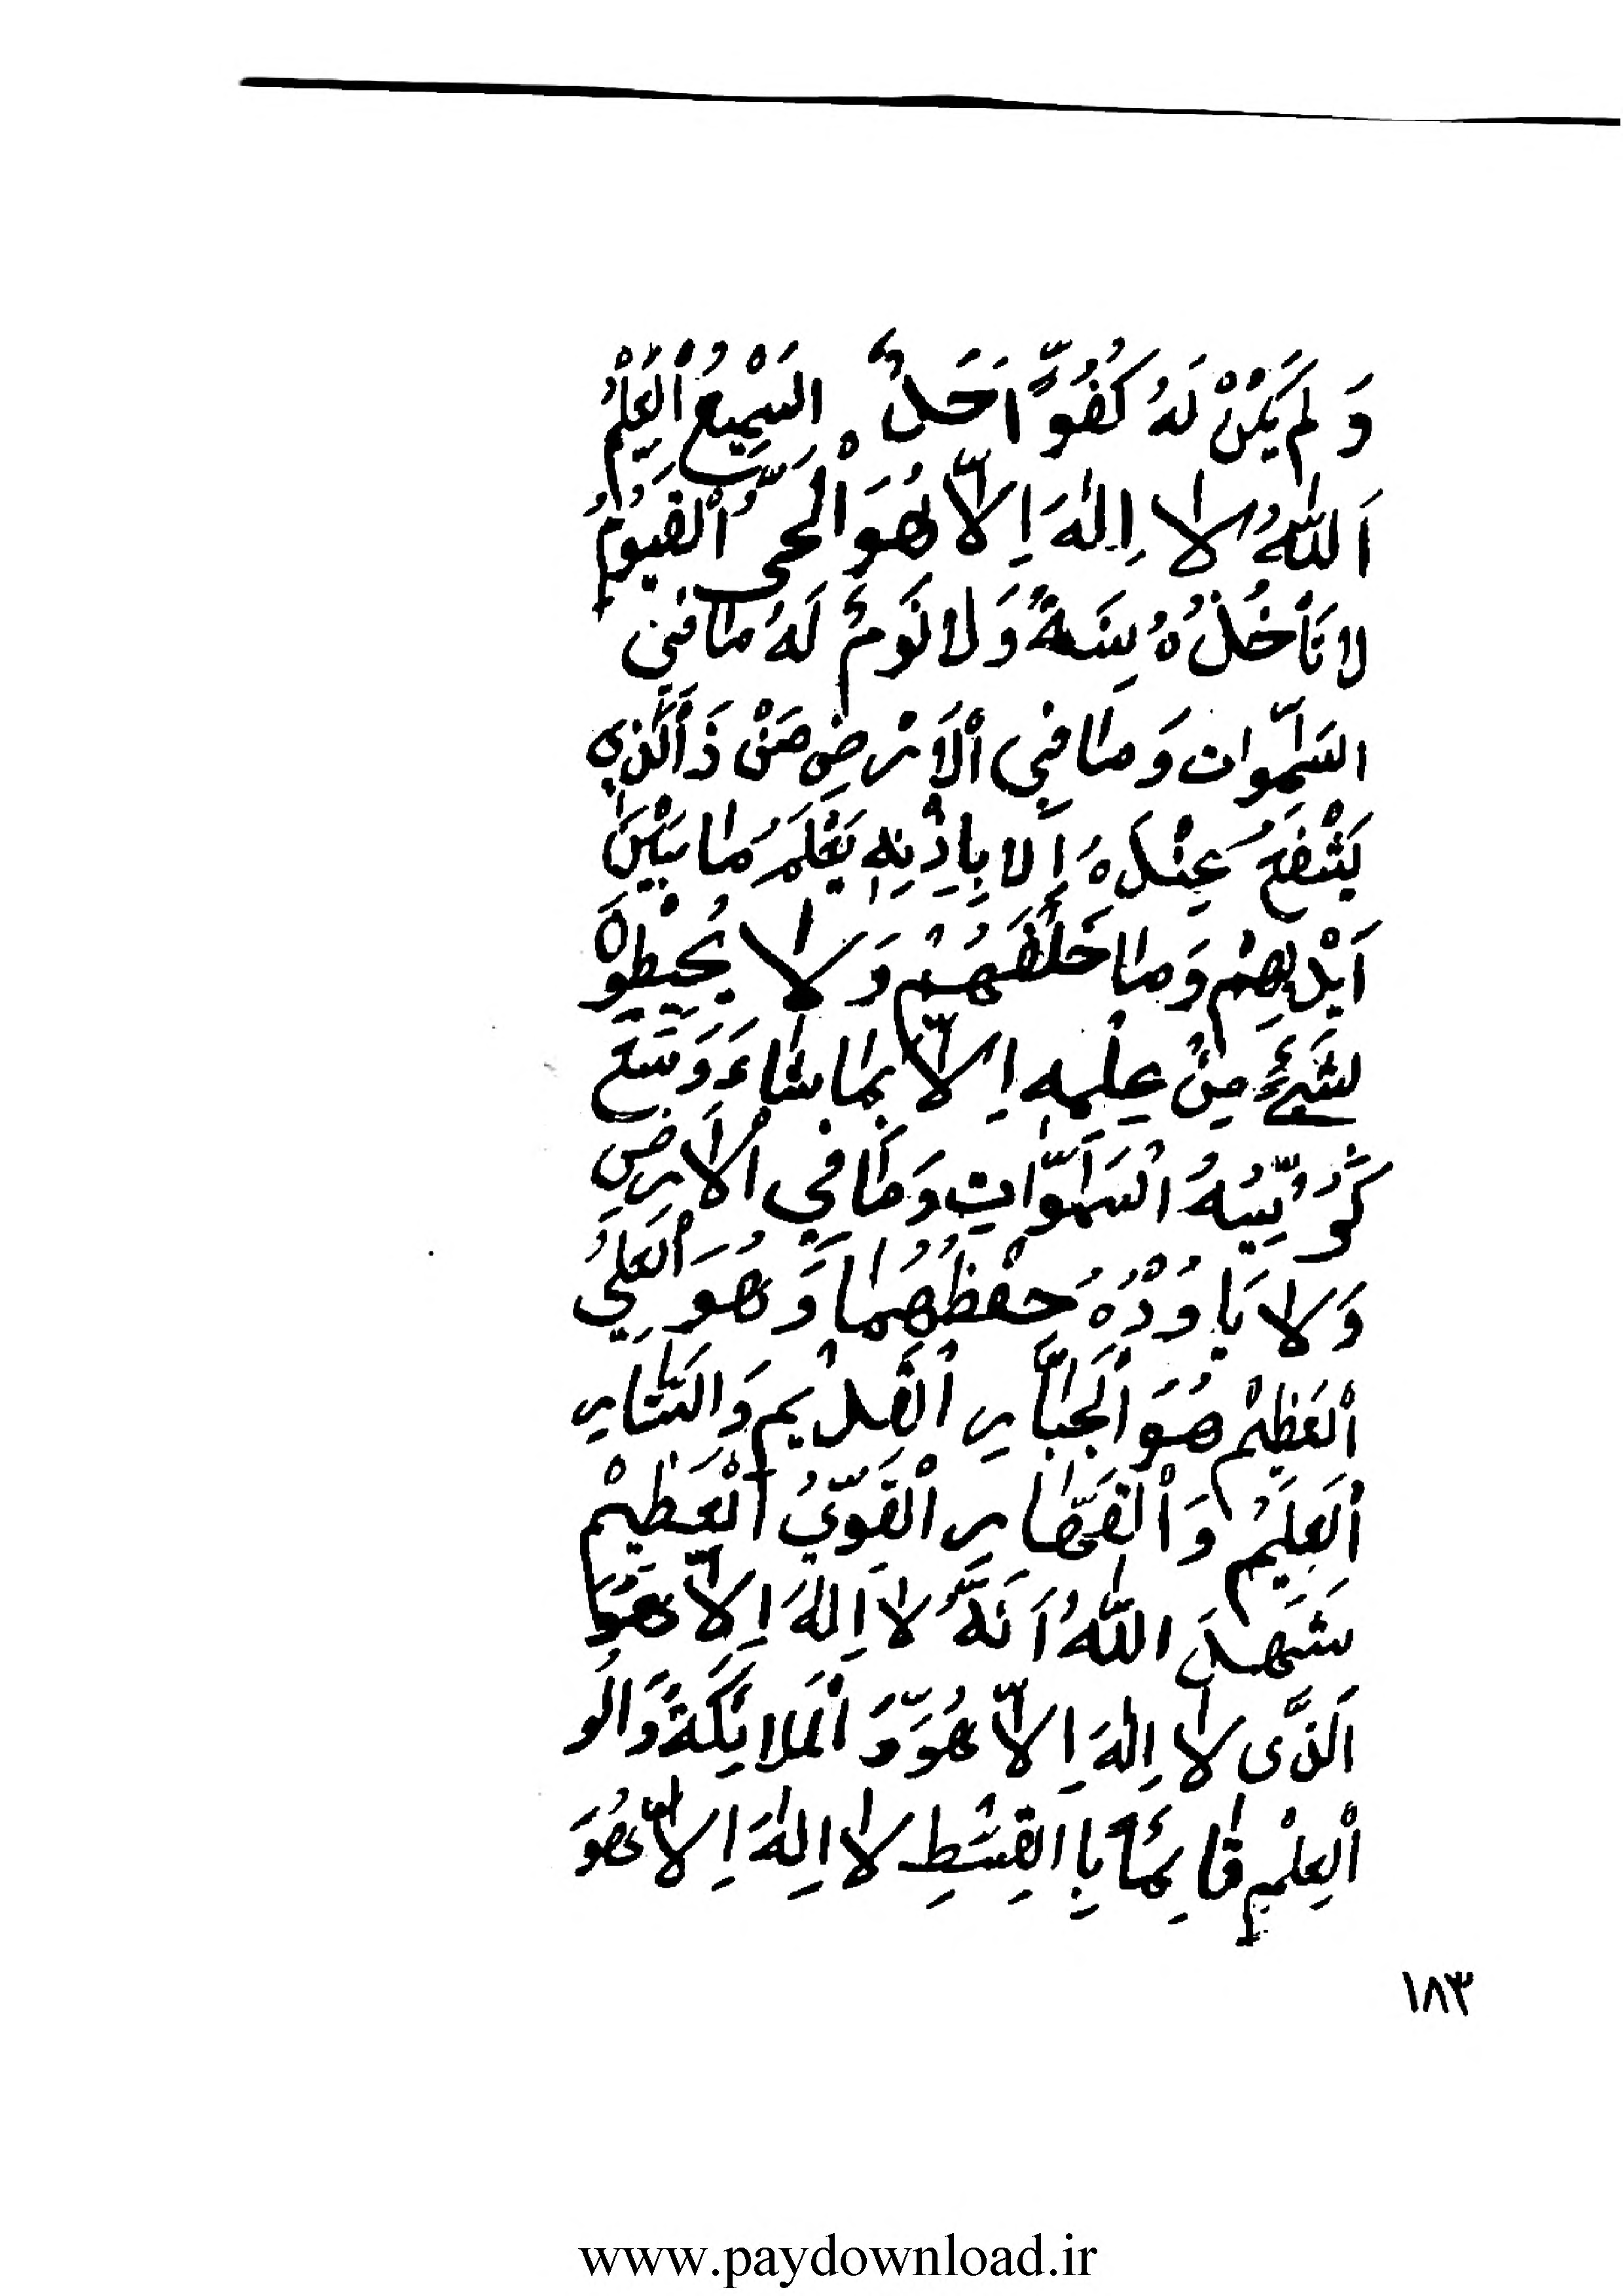 وَ لَم يَكُنْ لَهُ كُفُوًّ اَحَدٌ السَمِيْعُ اْلعَلِيْمُ
اَللّٰهُ لا اِلٰهَ اِلاّ هُوَ اْلحَىُّ اْلقَيّوُمُ
لا تَاْخُذُهُ سِنَةٌ وَ لا نَوْمٌ لَهُ مٰا فىِ
السَمّٰوات وَ مٰا فىِ اْلاَرْضِ مَنْ ذَاْلَّذي
يَشْفَعُ عِنْدَهُ اِلّا بِاِذْنِهِ يَعْلَمُ مٰا بَيْنَ
اَيْدِهِمْ وَ مٰا خَلْفَهُمْ وَ لا يُحيْطوْهَ
بشَيْءٍ مِنْ عِلْمِهِ اِلاّ بِمٰا شٰاءَ وَ سَعَ
كُرْسِّيُهُ اْلسَمٰوّاتِ وَ مٰا فِي اْلاَرضِ
وَ لا يَاوُدْهُ حفْظُهُمٰا وَ هُوَ اْلعَلِيُ
اْلعَظيِمْ هُوَ اْلجَبّٰارِ اْلقَدْيم وَ السَتّٰارِ
اْلعَلِيمُ وَ اْلقَهّٰارِ اْلقَوّيُ اْلعَظيِمْ
شَهدَ اللّٰهُ اَنَهَّ لا اِلٰهَ اِلاّ هُوَ
اَلذَّى لا اِلٰهَ اِلاّ هُوَ وَّ اْلمَلائكَةُ وَ الُو
اْلعِلْمِ قٰائِمًا بِا القِسْطِ لا اِلٰهَ اِلاّ هُوَ
١٨٣
www.paydownload.ir